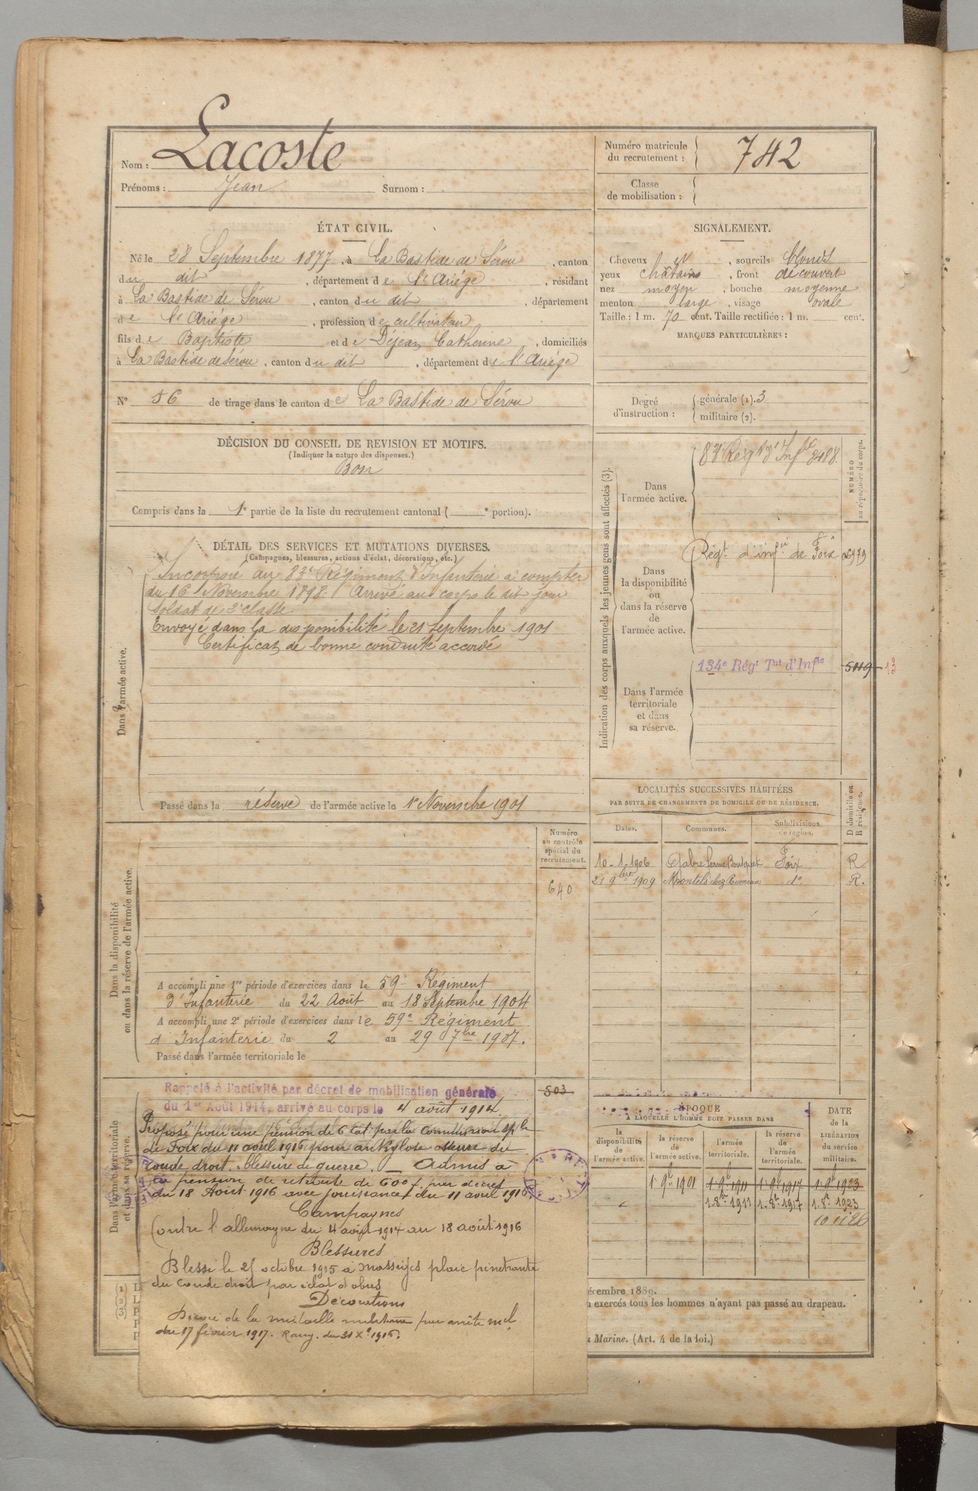 Nom : Lacoste
Prénoms : Jean Surnom :
Numéro matricule du recrutement : 742
Classe de mobilisation :
ÉTAT CIVIL.
Né le 28 Septembre 1877, à La Bastide de Sérou, canton
du dit, département de l'Ariège, résidant
à La Bastide de Sérou, canton du dit, département
de l'Ariège, profession de cultivateur
fils de Baptiste et de Déjean Catherine, domiciliés
à La Bastide de Sérou, canton du dit, département de l'Ariège
SIGNALEMENT.
Cheveux et, sourcils blonds
yeux chatains, front découvert
nez moyen, bouche moyenne
menton large, visage ovale
Taille : 1 m. 70 cent. Taille rectifiée : 1 m. cent.
MARQUES PARTICULIÈRES :
N° 56 de tirage dans le canton de La Bastide de Sérou
Degré d'instruction : générale (1). 3
militaire (2).
DÉCISION DU CONSEIL DE REVISION ET MOTIFS.
(Indiquer la nature des dispenses.)
Bon
Compris dans la 1e partie de la liste du recrutement cantonal ( e portion).
Indication des corps auxquels les jeunes gens sont affectés (3).
NUMÉRO au répertoire du corps.
Dans l'armée active. 83e Régt d'Infie
Dans la disponibilité ou dans la réserve de l'armée active. Régt d'infie de Foix
Dans l'armée territoriale et dans sa réserve. 134e Régt Tal d'Infie
DÉTAIL DES SERVICES ET MUTATIONS DIVERSES.
(Campagnes, blessures, actions d'éclat, décorations, etc.)
Dans l'armée active.
Incorporé au 83e Régiment d'infanterie à compter
du 16 Novembre 1898. Arrivé au corps le dit jour
soldat de 2e classe.
Envoyé dans la disponibilité le 21 septembre 1901
Certificat de bonne conduite accordé
Passé dans la réserve de l'armée active le 1er Novembre 1901
LOCALITÉS SUCCESSIVES HABITÉES
PAR SUITE DE CHANGEMENTS DE DOMICILE OU DE RÉSIDENCE.
Dates. Communes. Subdivisions de région. D domicile ou R résidence.
10-1-1906 Gabre Foix R
21 9bre 1909 Montels do R.
Numéro au contrôle spécial du recrutement.
640
Dans la disponibilité ou dans la réserve de l'armée active.
A accompli une 1re période d'exercices dans le 59e Régiment
d'Infanterie du 22 Août au 18 Septembre 1904
A accompli une 2e période d'exercices dans le 59e Régiment
d'Infanterie du 2 au 29 7bre 1907.
Passé dans l'armée territoriale le
503
Dans l'armée territoriale et dans sa réserve.
Rappelé à l'activité par décret de mobilisation générale
du 1er Août 1914, arrivé au corps le 4 août 1914.
Proposé pour une pension de 6 Cat par la Commission Sple
de Foix du 11 avril 1916 pour ankylose osseuse du
coude droit. blessure de guerre. — Admis à
la pension de retraite de 600f par décret
du 18 Août 1916 avec jouissance du 11 avril 1916
Campagnes
Contre l'allemagne du 4 août 1914 au 18 août 1916
Blessures
Blessé le 25 octobre 1915 à Massiges plaie pénétrante
du coude droit par éclat d'obus
Décorations
Décoré de la médaille militaire par arrêté mel
du 17 février 1917. Rang. du 31 Xe 1916.
ÉPOQUE À LAQUELLE L'HOMME DOIT PASSER DANS
la disponibilité de l'armée active. la réserve de l'armée active. l'armée territoriale. la réserve de l'armée territoriale.
DATE DE LA LIBÉRATION du service militaire.
1 9e 1901 1 9e 1911 1 9e 1917 1 9e 1923
1 8e 1911 1 8e 1917 1 8e 1923
écembre 1889.
exercés tous les hommes n'ayant pas passé au drapeau.
Marine. (Art. 4 de la loi.)